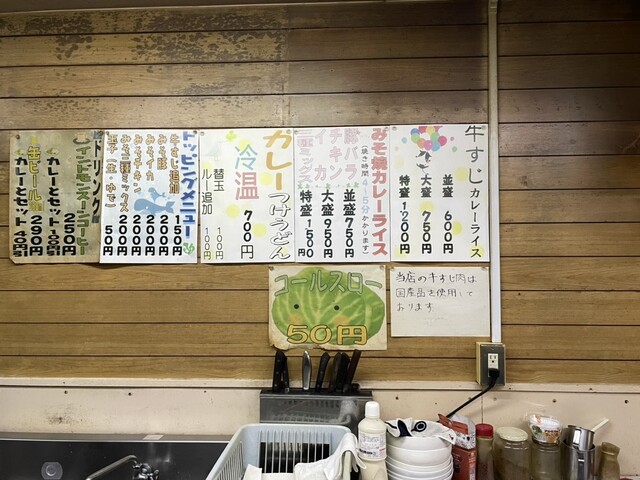 牛すじカレーライス
並盛 600円
大盛 750円
特盛 1200円
みそ焼カレーライス
(焼き時間 4〜5分かかります)
豚バラ
チキン
イカ
三種ミックス
並盛 750円
大盛 950円
特盛 1500円
カレーつけうどん
冷 温 700円
替玉 100円
ルー追加 100円
トッピングメニュー
牛すじ追加 150円
みそ豚 200円
みそイカ 200円
みそチキン 200円
みそ三種ミックス 200円
玉子(生・ゆで) 50円
ドリンク
アイスコーヒー 250円
カレーとセット 40円引
缶ビール 290円
カレーとセット 240円
コールスロー
50円
当店の牛すじ肉は
国産品を使用して
おります